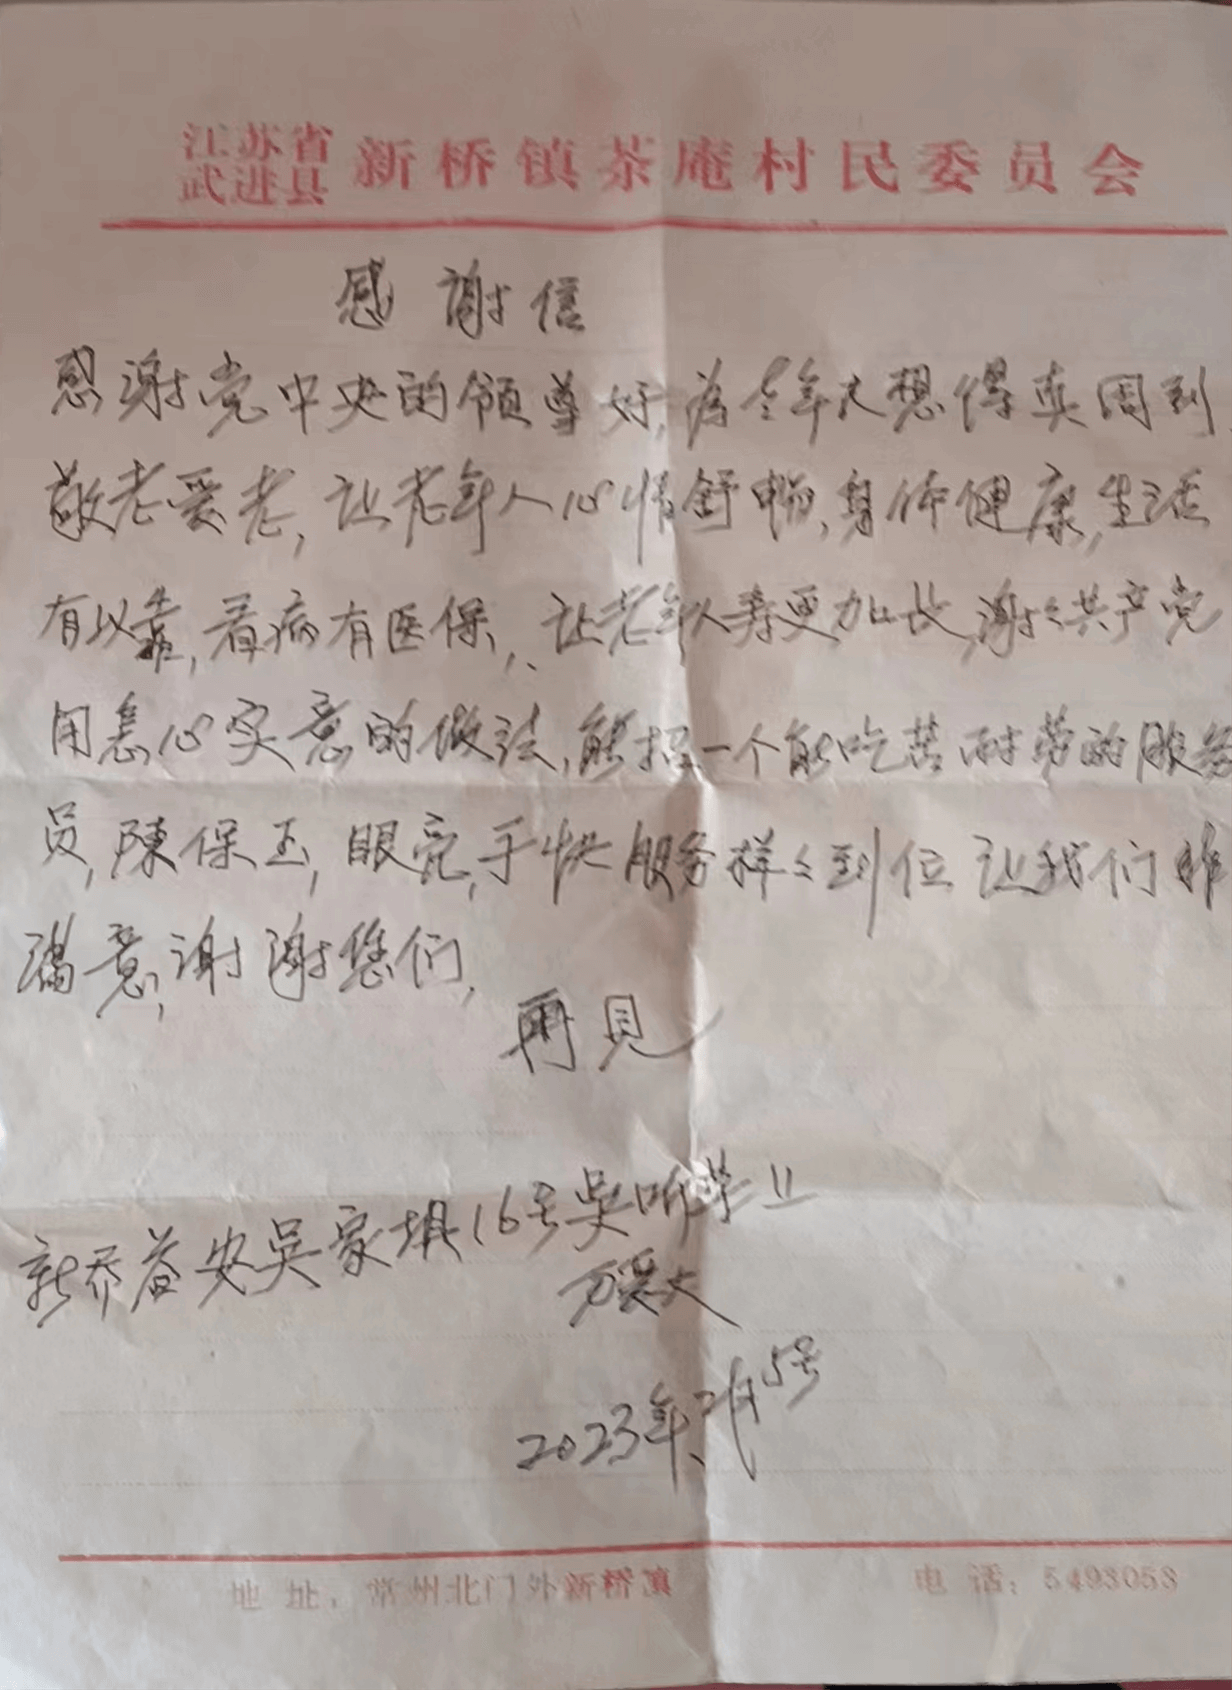 江苏省
武进县 新桥镇茶庵村民委员会
感谢信
感谢党中央的领导好,为老年人想得真周到,
敬老爱老,让老年人心情舒畅,身体健康,生活
有以靠,看病有医保,、让老年人寿更加长,谢谢共产党
用真心实意的做法,能招一个能吃苦耐劳的服务
员,陳保玉,眼亮,手快服务样々到位让我们非
满意,谢谢您们,
再见
新乔 安吴家 16号吴
2023年、2月5号
地址:常州北门外新桥镇 电话:5493053